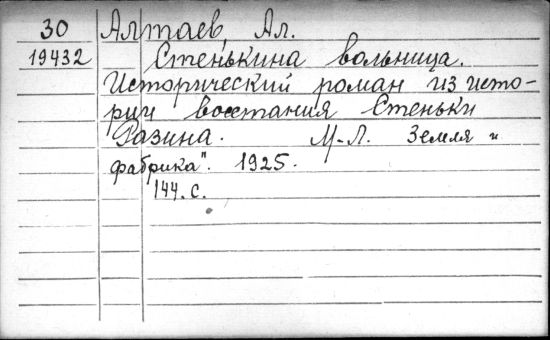 30 Алтаев, Ал.
19432 Стенькина вольница.
Исторический роман из исто-
рии восстания Стеньки
Разина. М-Л. Земля и
фабрика". 1925.
144. с.